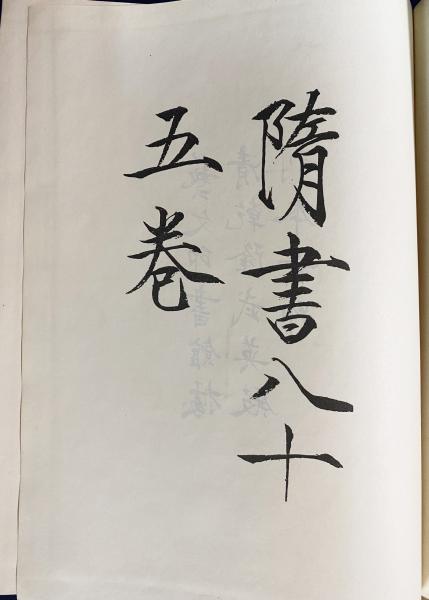 隋書八十
五卷